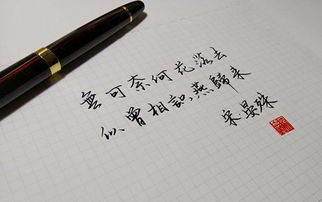 無可奈何花落去
似曾相識燕歸来
宋·晏殊